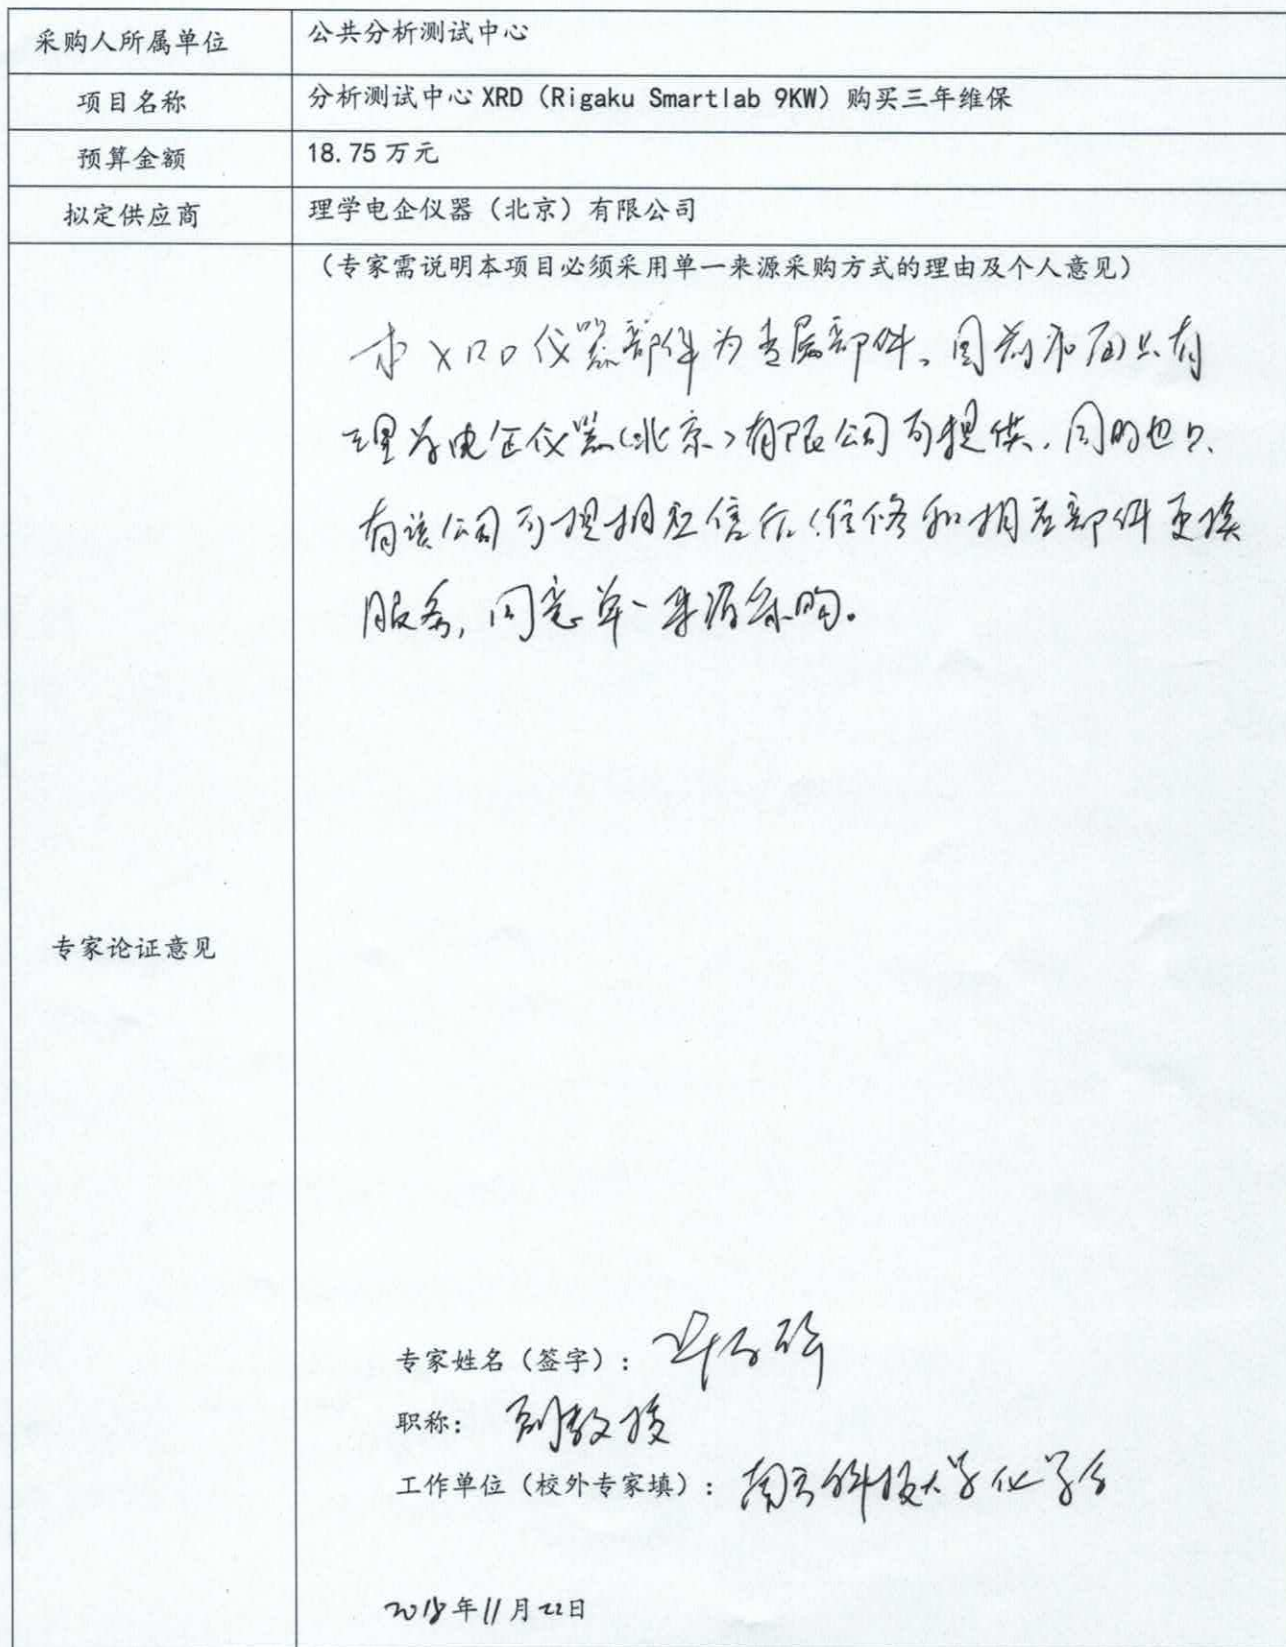 采购人所属单位 公共分析测试中心
项目名称 分析测试中心 XRD（Rigaku Smartlab 9KW）购买三年维保
预算金额 18.75 万元
拟定供应商 理学电企仪器（北京）有限公司
专家论证意见
（专家需说明本项目必须采用单一来源采购方式的理由及个人意见）
本 XRD 仪器部件为专属部件、目前市面只有
理学电企仪器(北京)有限公司可提供，同时也只
有该公司可提相应售后维修和相应部件更换
服务, 同意单一来源采购。
专家姓名（签字）：
职称： 副教授
工作单位（校外专家填）： 南方科技大学化学系
2018年11月22日